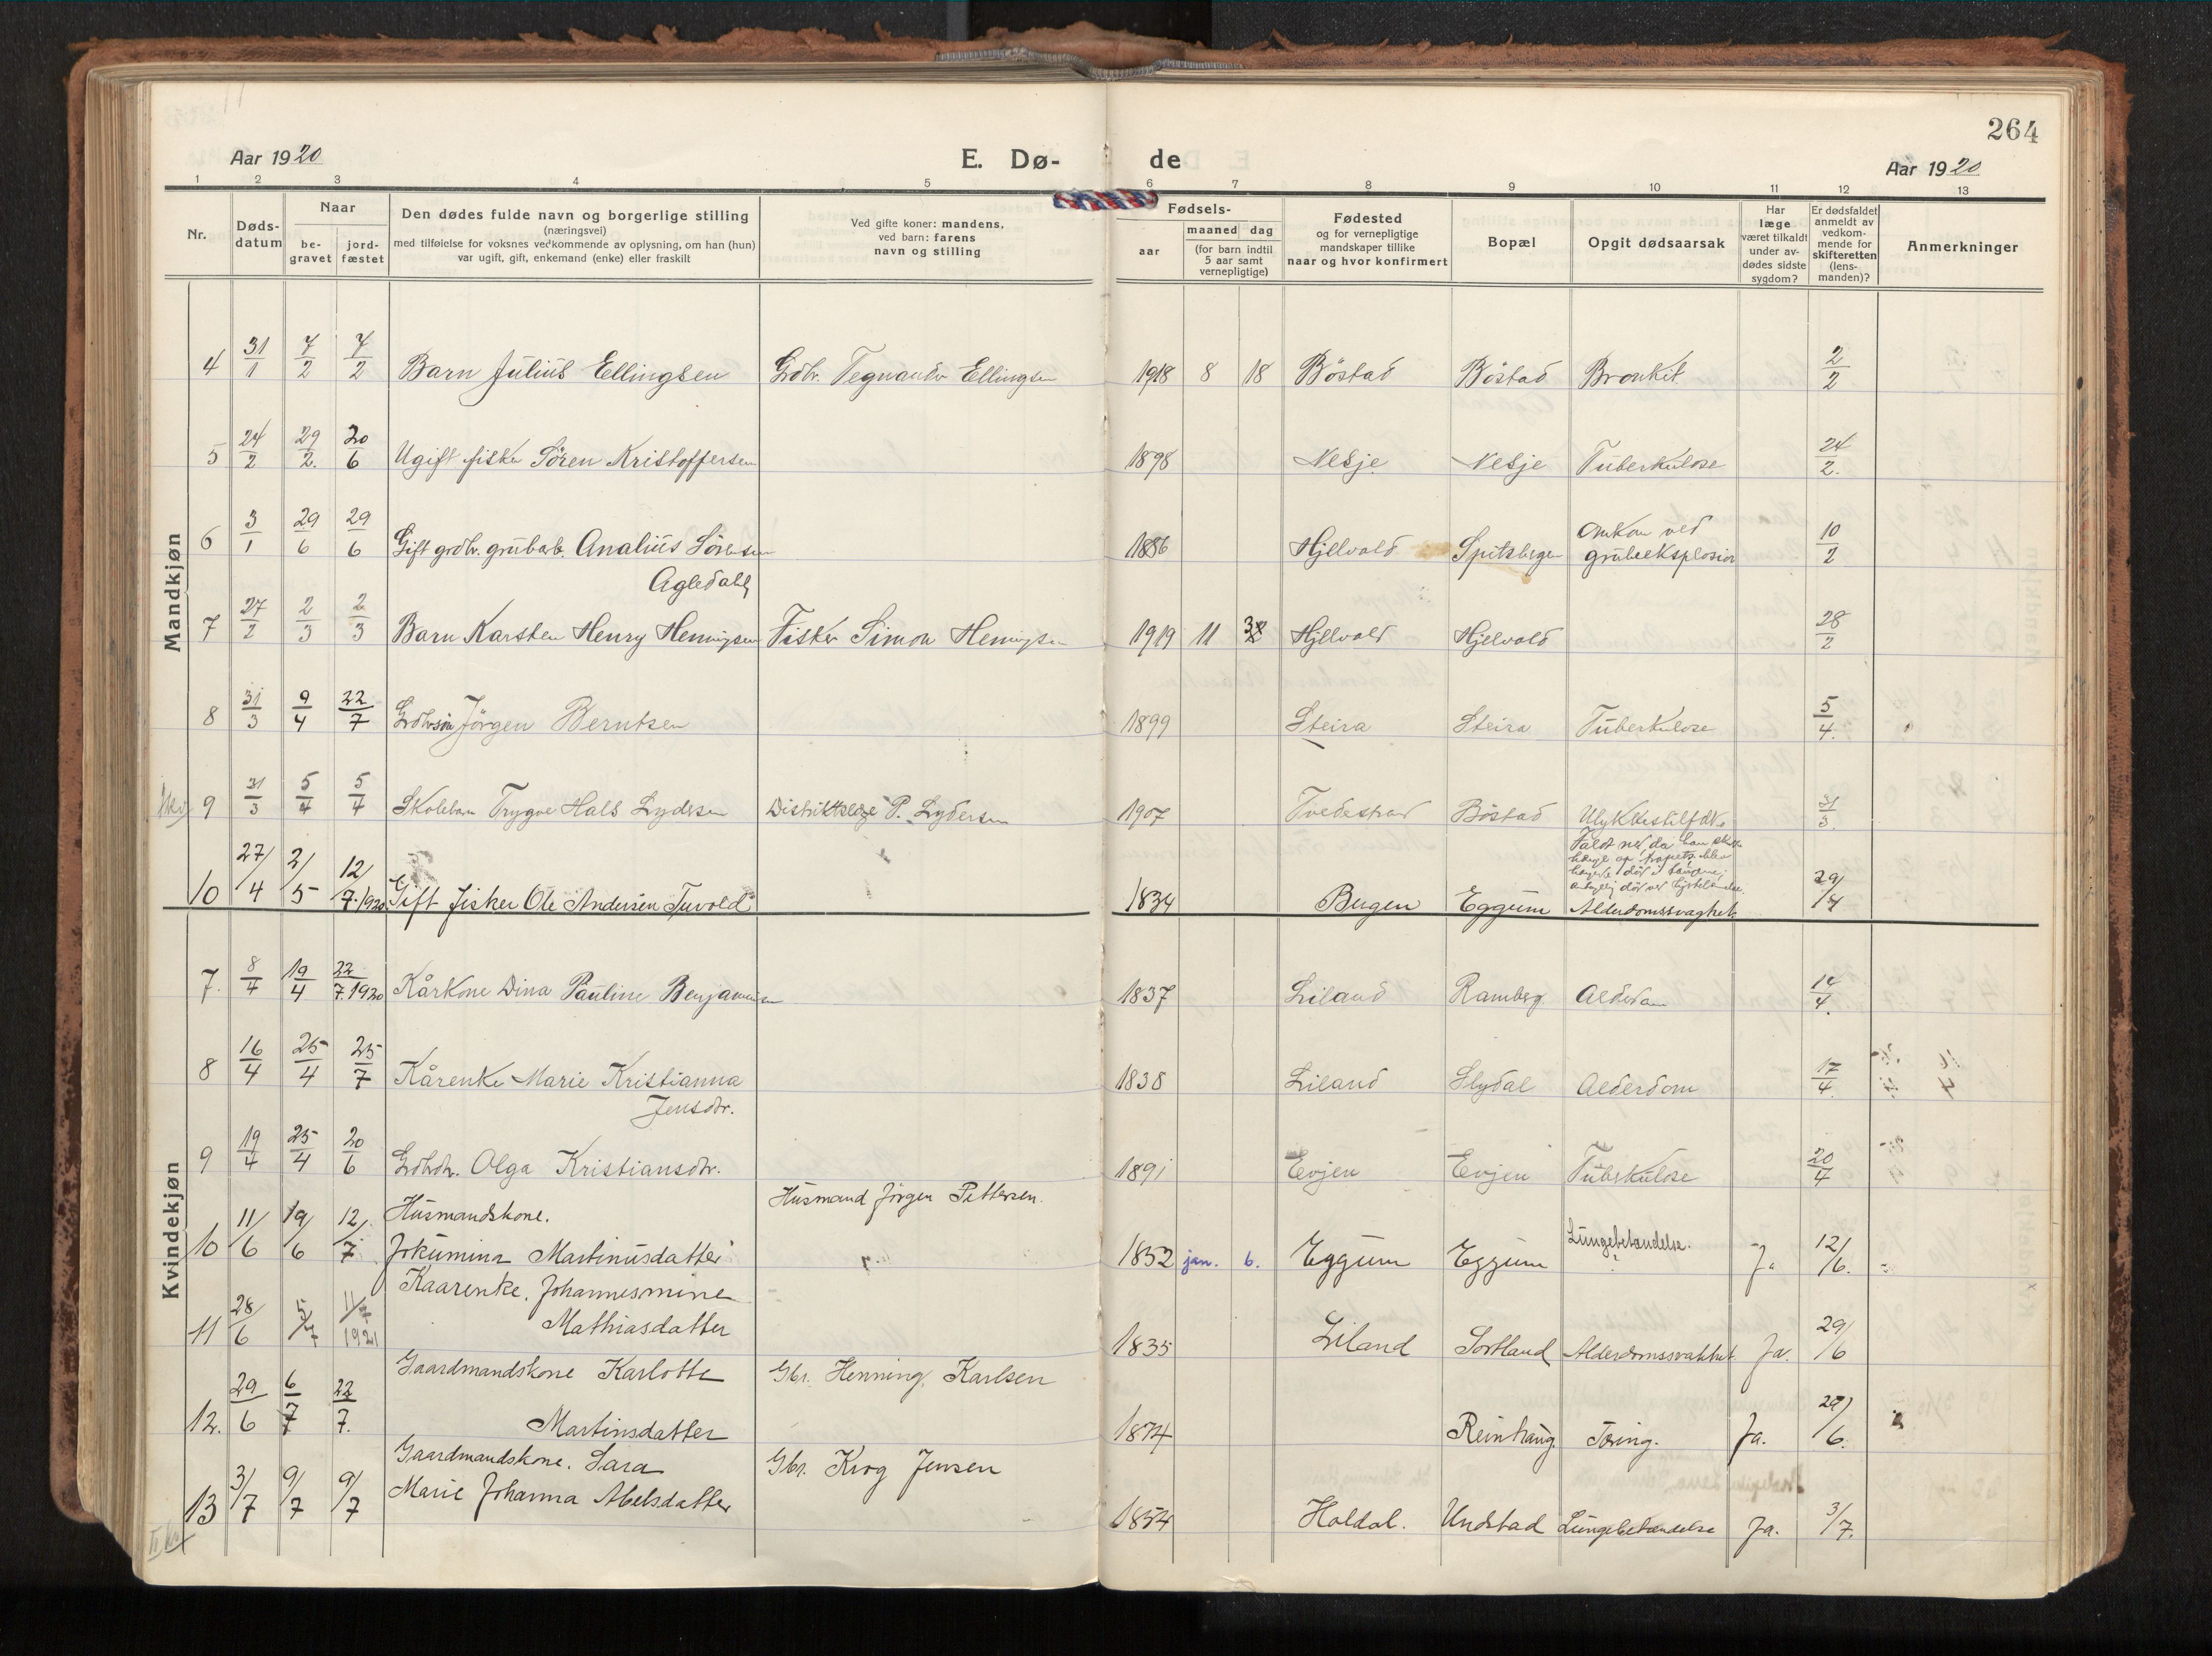 264
Aar 1920 E. Dø- de Aar 1920
1 2 3 4 5 6 7 8 9 10 11 12 13
Nr. Døds-datum Naar be-gravet jord-fæstet Den dødes fulde navn og borgerlige stilling (næringsvei) med tilføielse for voksnes vedkommende av oplysning, om han (hun) var ugift, gift, enkemand (enke) eller fraskilt Ved gifte koner: mandens, ved barn: farens navn og stilling Fødsels- aar maaned dag (for barn indtil 5 aar samt vernepligtige) Fødested og for vernepligtige mandskaper tillike naar og hvor konfirmert Bopæl Opgit dødsaarsak Har læge været tilkaldt under av-dødes sidste sygdom? Er dødsfaldet anmeldt av vedkom-mende for skifteretten (lens-manden)? Anmerkninger
Mandkjøn
4 31/1 7/2 7/2 Barn Julius Ellingsen Grdbr. Ellingsen 1918 8 18 Böstad Böstad Bronkit 2/2
5 24/2 29/2. 20/6 Ugift fisker Sören Kristoffersen 1898 Nesje Nesje Tuberkulose 24/2.
6 3/1 29/6 29/6 Gift grdbr. grubearb. Analius Sörensen 1886 Hjellvold Spitsbergen Omkom ved grubeeksplosion 10/2
Agledahl
7 27/2 2/3 2/3 Barn Karsten Henry Henningsen Fisker Simon Henningsen 1919 11 Hjellvold Hjelvold 28/2
8 31/3 9/4 22/7 Grdbrsön Jörgen Berntsen 1899 Steira Steira Tuberkulose 5/4.
9 31/3 5/4 5/4 Skolebarn Trygve Hals Lydersen Distriktslæge P. Lydersen 1907 Tvedestrand Böstad Ulykkestilfælde 31/3.
Faldt ned da han skulde
hænge op trapets, blev
hængende död i tauene;
antagelig död ved hjertelammelse.
10 27/4 2/5 12/7.1920 Gift fisker Ole Andersen Tuvold 1834 Bugen Eggum Alderdomssvaghet 29/4
Kvindekjøn
7. 8/4 19/4 22/7.1920 Kårkone Dina Pauline Benjaminsen 1837 Liland Ramberg Alderdom 14/4.
8 16/4 25/4 25/7 Kårenke Marie Kristianna 1838 Liland Slydal Alderdom 17/4.
Jensdtr.
9 19/4 25/4 20/6 Grdbrdtr. Olga Kristiansdtr. 1891 Evjen Evjen Tuberkulose 20/4
Husmandskone. Husmand Jörgen Pettersen.
10 11/6 19/6 12/7 Jokumina Martinusdatter 1852 jan. 6. Eggum Eggum Lungebetændelse. Ja 12/6.
Kaarenke. Johannesmine
11 28/6 5/7 11/7 1921 Mathiasdatter 1835 Liland Sortland Alderdomssvakhet. Ja. 29/6
Gaardmandskone Karlotte Gbr. Henning Karlsen
12. 29/6 6/7 22/7. Martinsdatter 1874 Reinhaug Tæring. Ja. 29/6.
Gaardmandskone. Sara Gbr. Krog Jensen
13 3/7 9/7 9/7 Marie Johanna Abelsdatter 1854 Holdal. Undstad Lungebetændelse Ja. 3/7.